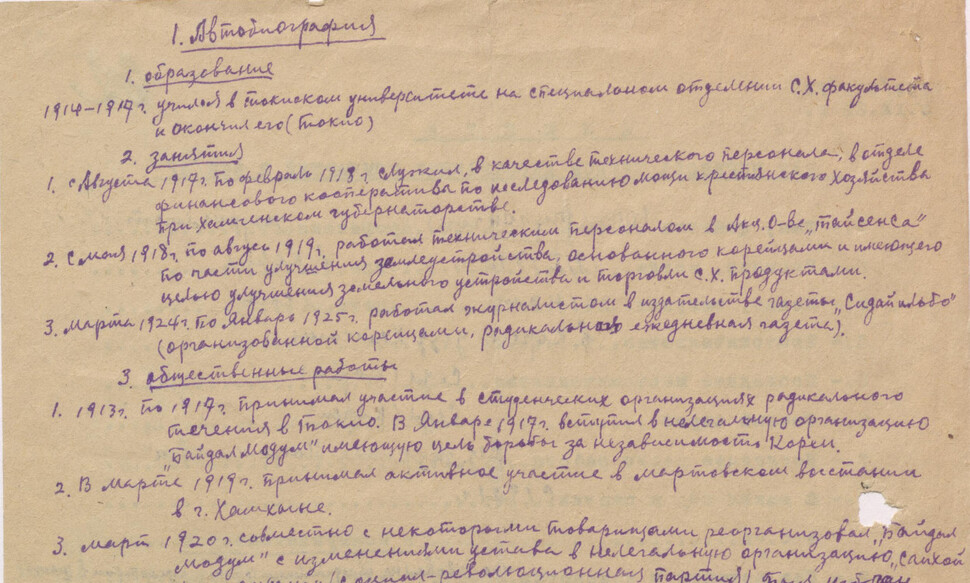 1. Автобиография
1. образование
1914-1917 г. учился в токиском университете на специальном отделении С.Х. факультета
и окончил его (Токио)
2. занятия
1. с Августа 1917 г. по февраль 1918 г. служил, в качестве технического персонала, в отделе
финансового кооператива по исследованию мощи крестьянского хозяйства
при Хамгенском губернаторстве.
2. С мая 1918 г. по август 1919 г. работал техническим персоналом в Акц. О-ве „Тайсенса"
по части улучшения землеустройства, основанного корейцами и имеющего
целью улучшения земельного устройства и торговли С.Х. продуктами.
3. Марта 1924 г. по Январь 1925 г. работал журналистом в издательстве газеты „Сидайильбо"
(организованной корейцами, радикальная ежедневная газета).
3. общественные работы
1. 1913 г. по 1917 г. принимал участие в студенческих организациях радикального
течения в Токио. В Январе 1917 г. вступил в нелегальную организацию
„Пайдал модум" имеющую цель борьбы за независимость Кореи.
2. В Марте 1919 г. принимал активное участие в мартовском восстании
в г. Хамхыне.
3. март 1920 г. совместно с некоторыми товарищами реорганизовал „Пайдал
модум" с изменениями устава в нелегальную организацию „Сахой
(социал-революционная партия)